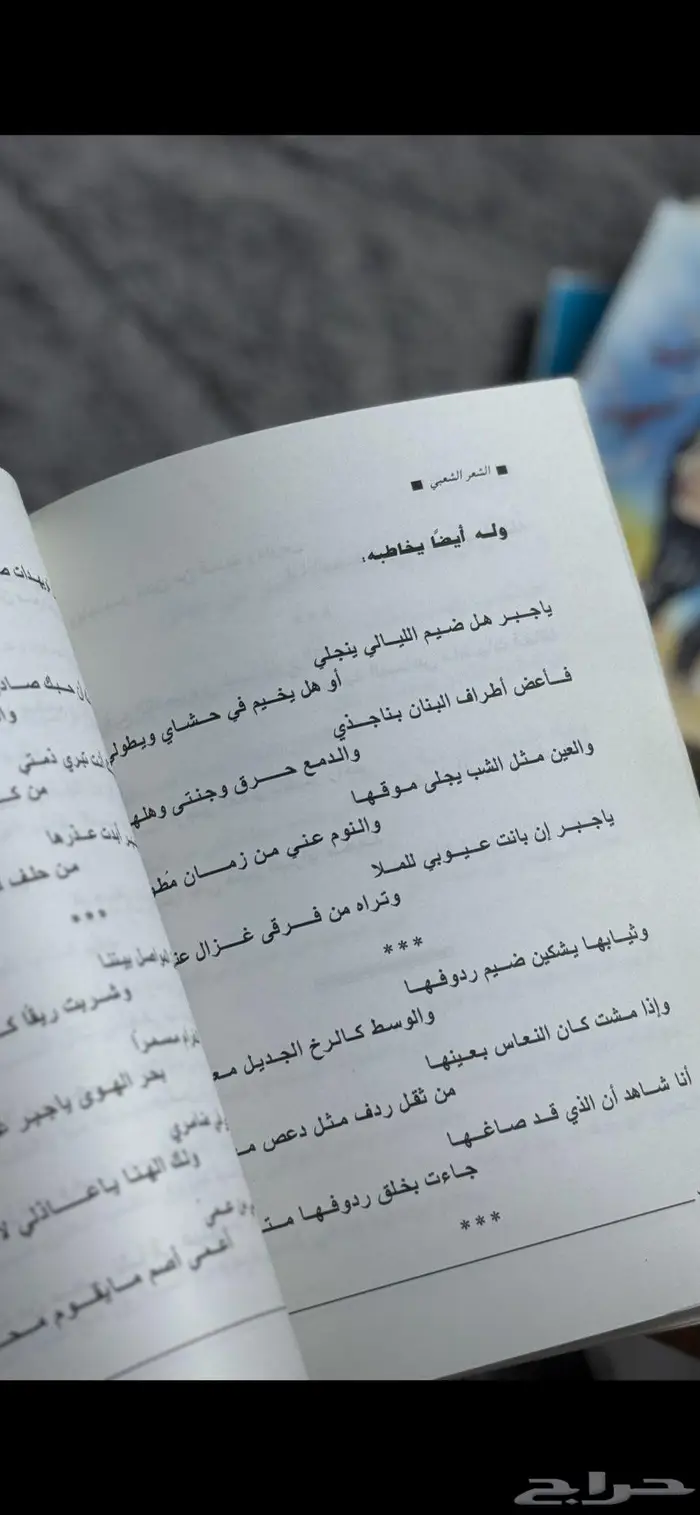 ■ الشعر الشعبي ■
وله أيضًا يخاطبه:
ياجبر هل ضيم الليالي ينجلي
أو هل يخيم في حشاي ويطولي
فأعض أطراف البنان بناجذي
والدمع حرق وجنتى وهلها
والعين مثل الشب يجلى موقها
والنوم عني من زمان
ياجبر إن بانت عيوبي للملا
وتراه من فرقى غزال
***
وثيابها يشكين ضيم ردوفها
والوسط كالرخ الجديل
وإذا مشت كان النعاس بعينها
من ثقل ردف مثل دعص
أنا شاهد أن الذي قد صاغها
جاءت بخلق ردوفها
***
أن حبك
تبري ذمتي
من
أبديت عذرها
من حلف
***
بيننا
وشربت ريقًا
بحر الهوى ياجبر
ولك الهنا ياعاذلي
أعمى أصم مايقوم
حراج